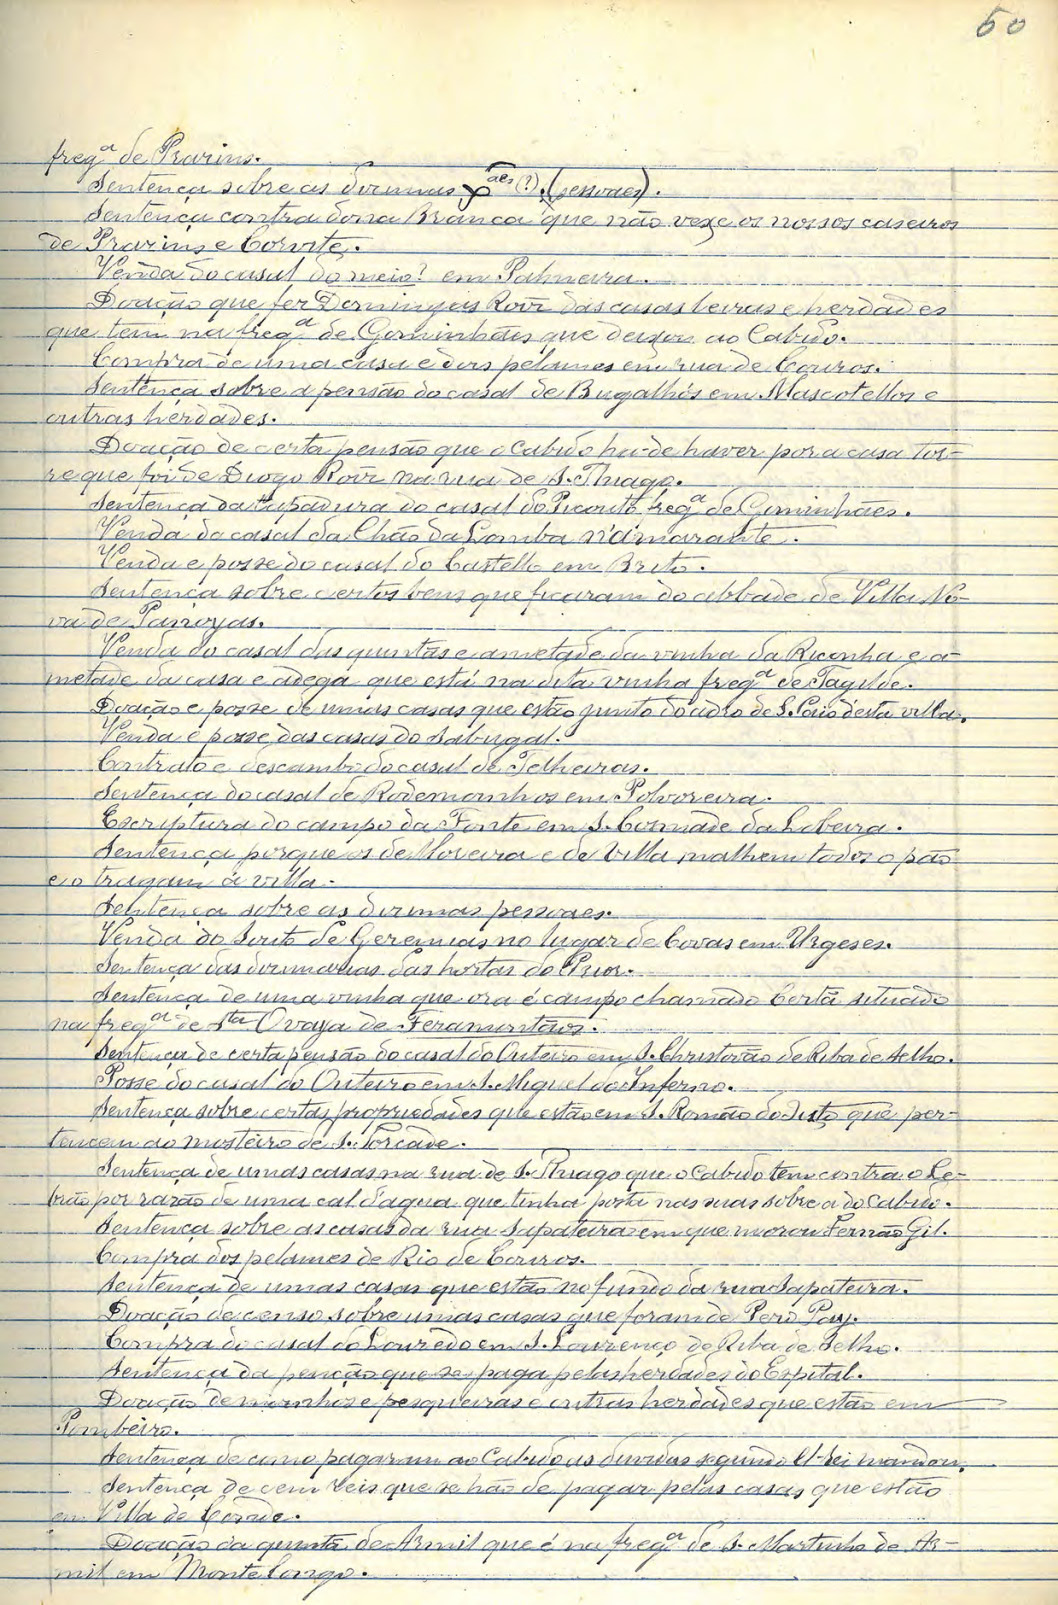 50
freg.ª de Prazins.
Sentença sobre as dizimas p aes (?). (pessoaes).
Sentença contra dona Branca que não vexe os nossos caseiros
de Prazins e Corvite.
Venda do casal do meio? em Palmeira.
Doação que fez Domingas Roiz das casas leiras e herdades
que tem na freg.ª de Gominhães que deixou ao Cabido.
Compra de uma casa e dois pelames em rua de Couros.
Sentença sobre a pensão do casal de Bugalhós em Mascotellos e
outras herdades.
Doação de certa pensão que o Cabido ha-de haver por a casa tor-
re que foi de Diogo Roiz na rua de S. Thiago.
Sentença da tapadura do casal do Picouto freg.ª de Gominhães.
Venda do casal da Chão da Lomba n'Amarante.
Venda e posse do casal do Castello em Brito.
Sentença sobre certos bens que ficaram do abbade de Villa No-
va de Panoyas.
Venda do casal das quintãs e ametade da vinha da Riconha e a-
metade da casa e adega que está na dita vinha freg.ª de Tagilde.
Doação e posse de umas casas que estão junto do adro de S. Paio d'esta villa.
Venda e posse das casas do Sabugal.
Contrato e descambo do casal de Telheiras.
Sentença do casal de Rodemoinhos em Polvoreira.
Escriptura do campo da Fonte em S. Cosmade da Lobeira.
Sentença porque os de Moreira e de Villa malhem todos o pão
e o tragam á villa.
Sentença sobre as dizimas pessoaes.
Venda do Souto de Geremias no lugar de Covas em Urgeses.
Sentença das dizimarias das hortas do Prior.
Sentença de uma vinha que ora é campo chamado Certã situado
na freg.ª de S.ta Ovaya de Feramontãos.
Sentença de certa pensão do casal do Outeiro em S. Christovão de Riba de Selho.
Posse do casal do Outeiro em S. Miguel do Inferno.
Sentença sobre certas propriedades que estão em S. Romão doИсto que per-
tencem ao mosteiro de S. Torcade.
Sentença de umas casas na rua de S. Thiago que o Cabido tem contra o Le-
brão por razão de uma cal d'agua que tinha posta nas suas sobre a do Cabido.
Sentença sobre as casas da rua Sapateira em que morou Fernão Gil.
Compra dos pelames de Rio de Couros.
Sentença de umas casas que estão no fundo da rua Sapateira.
Doação de censo sobre umas casas que foram de Pero Pay.
Compra do casal do Louredo em S. Lourenço de Riba de Selho.
Sentença da penção que se paga pelas herdades do Espital.
Doação de moinhos e pesqueiras e outras herdades que estão em
Pombeiro.
Sentença de como pagaram ao Cabido as dividas segundo El-rei mandou.
Sentença de cem reis que se hão de pagar pelas casas que estão
em Villa de Conde.
Doação da quintã de Armil que é na freg.ª de S. Martinho de Ar-
mil em Monte Longo.